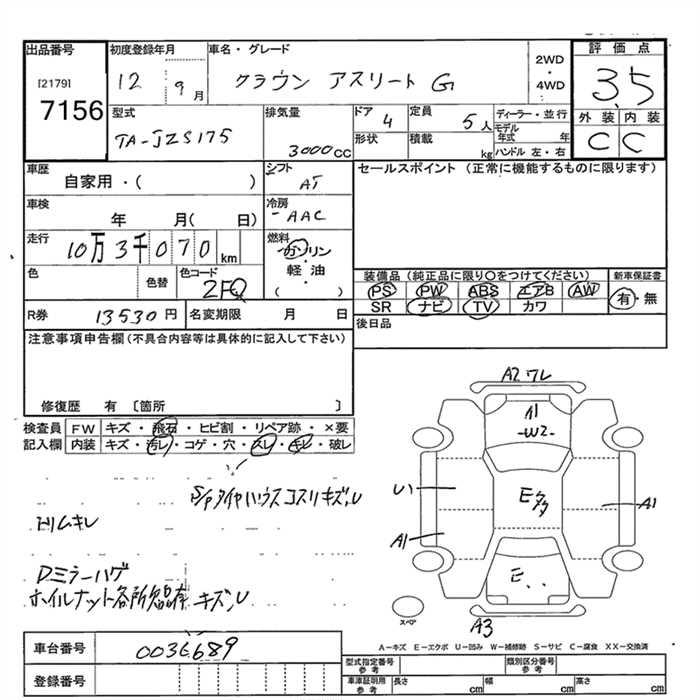 出品番号 初度登録年月 車名・グレード 評価点
[2179] 7156
12 9月 クラウン アスリート G
2WD ・ 4WD
3.5
外装 内装
C C
型式 排気量 ドア 定員 ディーラー・並行
TA-JZS175 3000CC 4 5人
モデル年式 年
形状 積載 kg ハンドル 左・右
車歴 シフト セールスポイント (正常に機能するものに限ります)
自家用・( ) AT
車検 冷房
年 月( 日) AAC
走行 燃料
10万3千070km ガソリン・軽油・( )
色 色替 色コード
2FQ
装備品 (純正品に限り〇をつけてください) 新車保証書
PS PW ABS エアB AW 有・無
SR ナビ TV カワ
R券 13530円 名変期限 月 日
後日品
注意事項申告欄 (不具合内容等は具体的に記入して下さい)
修復歴 有 〔箇所 〕
検査員記入欄 FW キズ・飛石・ヒビ割・リペア跡・×要
内装 キズ・汚レ・コゲ・穴・スレ・キレ・破レ
A2ワレ
A1
W2
S/Pタイヤハウスコスリキズ、U
ドリムキレ
U1
E多多
A1
A1
Dミラーハゲ
E
ホイルナット各所欠品有 キズ、U
スペア
A3
A-キズ E-エクボ U-凹み W-補修跡 S-サビ C-腐食 XX-交換済
車台番号 0036689
登録番号
型式指定番号 参考 類別区分番号 参考
車庫証明用 参考 長さ cm 幅 cm 高さ cm